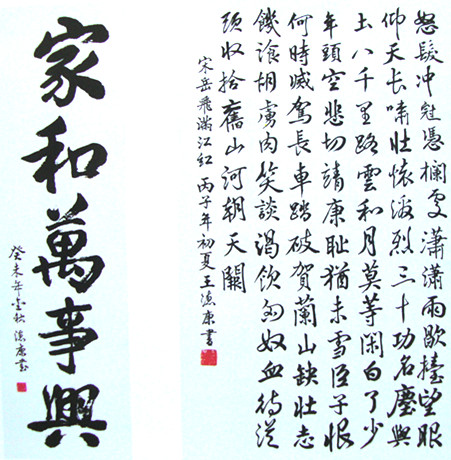 怒髮冲冠憑欄處瀟瀟雨歇擡望眼
仰天长嘯壯懷激烈三十功名塵與
土八千里路雲和月莫等闲白了少
年頭空悲切靖康耻猶未雪臣子恨
何時滅駕長車踏破賀蘭山缺壯志
饑飡胡虜肉笑談渴飲匈奴血待從
頭收拾舊山河朝天闕
宋岳飛滿江紅 丙子年初夏王康書
家和萬事興
癸未年金秋 康書